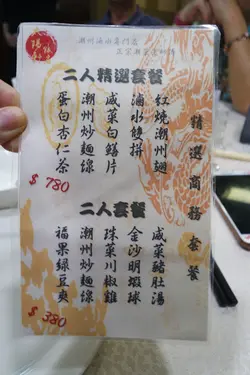 潮州滷水專門店
精選商務套餐
二人精選套餐
紅燒潮州翅
滷水雙拼
咸菜白鱔片
潮州炒麵線
蛋白杏仁茶
$ 780
二人套餐
咸菜豬肚湯
金沙明蝦球
珠菜川椒雞
潮州炒麵線
福果綠豆爽
$ 380